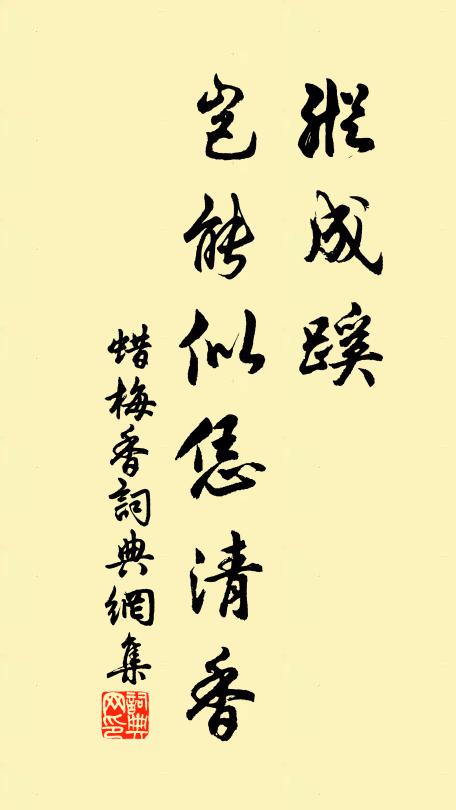 縱成蹊
豈能似恁清香
蜡梅香詞典網集
詞典
网印